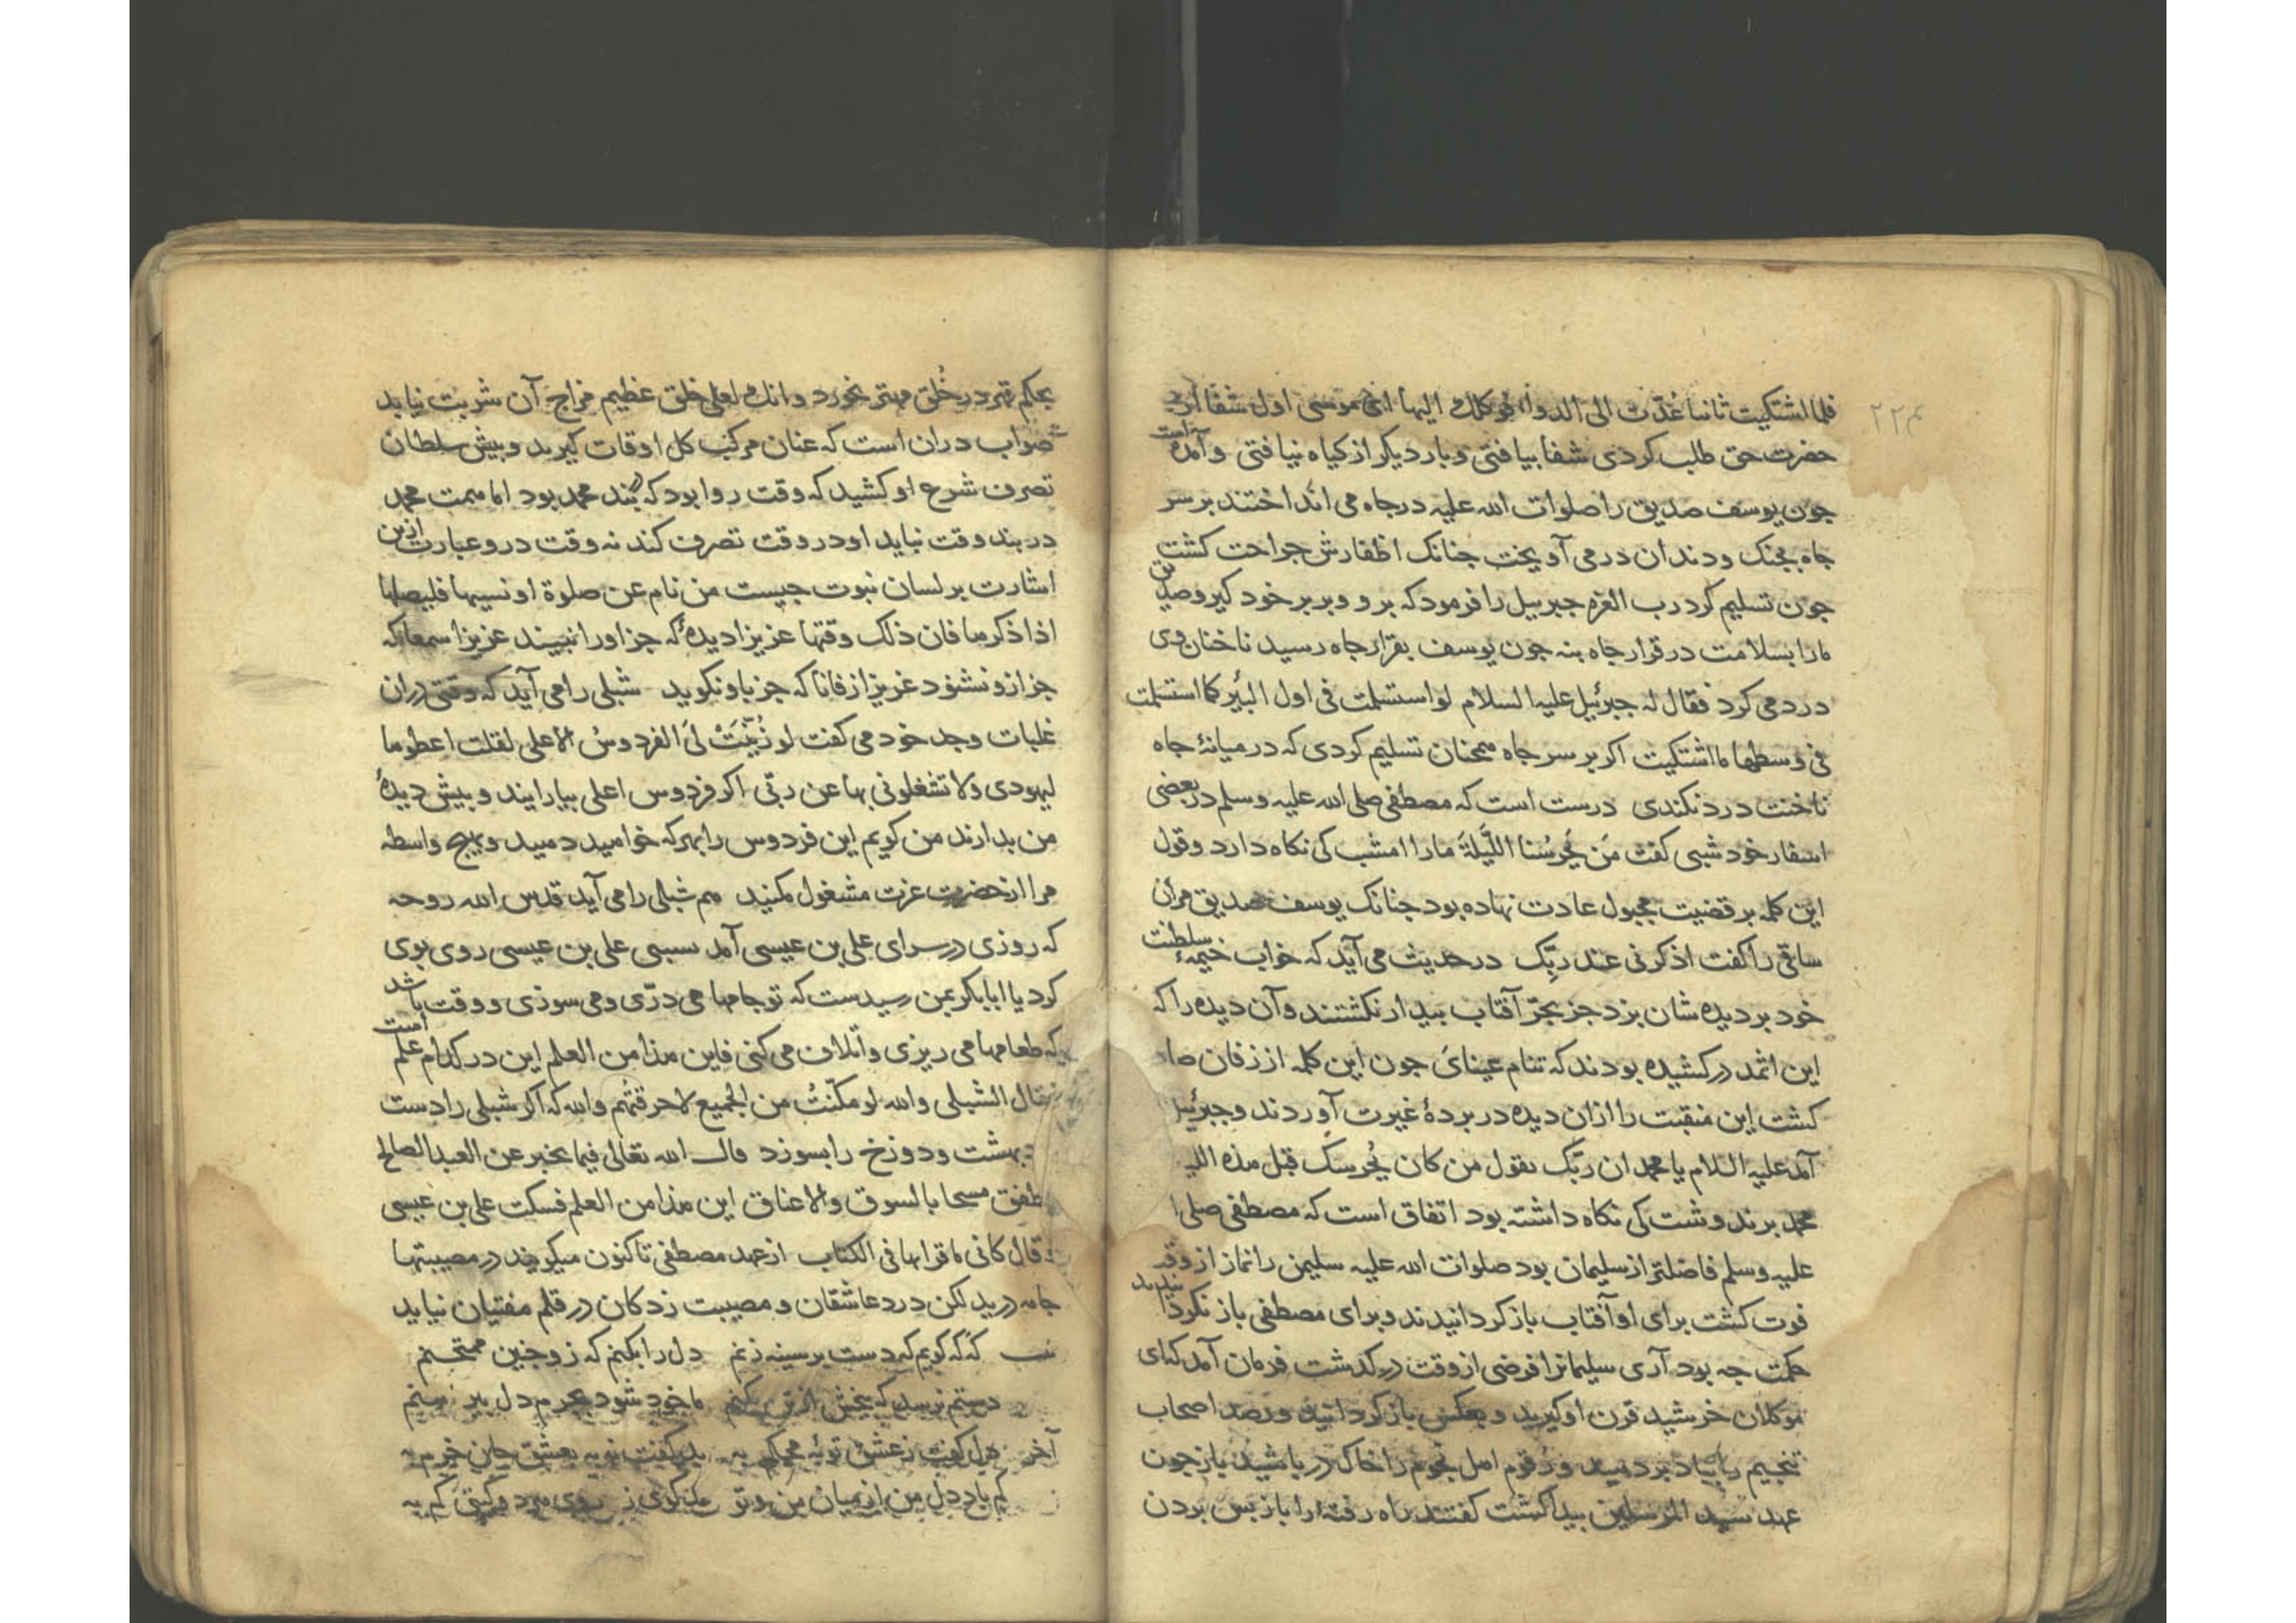 ۲۲۴
فلما اشتكیت ثانیا غدّت الی الدواء فوكلك الیها ای موسی اول شفا از
حضرت حق طلب كردی شفا بیافتی و بار دیكر از كیاه نیافتی و آمده است
جون یوسف صدیق را صلوات الله علیه در جاه می انداختند بر سر
جاه بجنك و دندان در می آویخت جنانك اظفارش جراحت كشت
جون تسلیم كرد رب العزه جبرییل را فرمود كه برو و بر بر خود كیر و صدیق
ما را بسلامت در قرار جاه بنه جون یوسف بقرار جاه رسید ناخنان وی
درد می كرد فقال له جبرئیل علیه السلام لو استسلمت فی اول البئر كما استسلمت
فی وسطها ما اشتكیت اكر بر سر جاه همچنان تسلیم كردی كه در میانهٔ جاه
ناخنت درد نكندی درست است كه مصطفی صلی الله علیه وسلم در بعضی
اسفار خود شبی كفت مَن یَحرُسُنا اللَّیلَةَ ما را امشب كی نكاه دارد و قول
این كلمه بر قضیت مجبول عادت نهاده بود جنانك یوسف صدیق مر آن
ساقی را كفت اذكرنی عند ربّك در حدیث می آید كه خواب خیمهٔ سلطنت
خود بر دیده شان بزد جز بحَرّ آفتاب بیدار نكشتند و آن دیده را كه
این اثمد در كشیده بودند كه تنام عینای جون این كلمه از زفان
كشت این منقبت را از ان دیده در بردهٔ غیرت آوردند و جبرئیل
آمد علیه السلام یا محمد ان ربّك یقول من كان یُحرسك قبل هذه
محمد برند وشت كی نكاه داشته بود اتفاق است كه مصطفی صلی
علیه وسلم فاضلتر از سلیمان بود صلوات الله علیه سلیمن را نماز از وقت
فوت كشت برای او آفتاب باز كردانیدند و برای مصطفی باز نكردانیدند
حكمت جه بود آری سلیمانرا فرضی از وقت در كذشت فرمان آمد كه ای
موكلان خرشید قرن او كیرید و بعكس باز كردانید و رصد اصحاب
تنجیم را بباد بر دهید و رقوم اهل نجوم را خاك در باشید باز جون
عهد سید المرسلین بیدا كشت كفتند راه رفته را باز بس بردن
بحكم قهر در خُلق مهتر نخورد و انك لعلی خلق عظیم مزاج آن شربت نیابد
صواب دران است كه عنان مركب كل اوقات كیرید و بیش سلطان
تصرف شرع او كشید كه وقت روا بود كه بند محمد بود اما همت محمد
در بند وقت نباید او در وقت تصرف كند نه وقت درو عبارت ازین
اشارت بر لسان نبوت جیست من نام عن صلوة او نسیها فلیصلها
اذا ذكرها فان ذلك وقتها عزیزا دیدهٔ كه جز او را نبیند عزیزا سمعا كه
جز ازو نشنود عزیزا زفانا كه جز با و نكوید شبلی را می آید كه وقتی دران
غلبات وجد خود می كفت لو زُیّنَتْ لیَ الفردوسُ الاعلی لقلت اعطوها
لیهودی ولا تشغلونی بها عن ربّی اكر فردوس اعلی بیارایند و بیش دیدهٔ
من بدارند من كویم این فردوس را بهر كه خواهید دهید و بهیج واسطه
مرا از حضرت عزت مشغول مكنید هم شبلی را می آید قدس الله روحه
كه روزی در سرای علی بن عیسی آمد سبسی علی بن عیسی روی بوی
كرد یا ابابكر بمن رسیدست كه تو جامها می درّی و می سوزی و وقت باشد
كه طعامها می ریزی و اتلاف می كنی فاین هذا من العلم این در كدام علم است
فقال الشبلی والله لو مكّنتُ من الجمیع لاحرقتُهم والله كه اكر شبلی را دست
دهد بهشت و دوزخ را بسوزد قال الله تعالی فیما یخبر عن العبد الصالح
فطفق مسحا بالسوق والاعناق این هذا من العلم فسكت علی بن عیسی
و قال كانی ما قراتها فی الكتاب از عهد مصطفی تاكنون میكویند در مصیبتها
جامه مدرید لكن درد عاشقان و مصیبت زدكان در قلم مفتیان نیاید
كه كه كویم كه دست بر سینه زنم دل را بكنم كه زو جنین ممتحنم
دستم نرسد كه بیخش از تن بكنم ما خود شود بجرم دل
آخر دل كفت ز عشق توبهٔ محكم به
كم باد دل من از میان من و تو